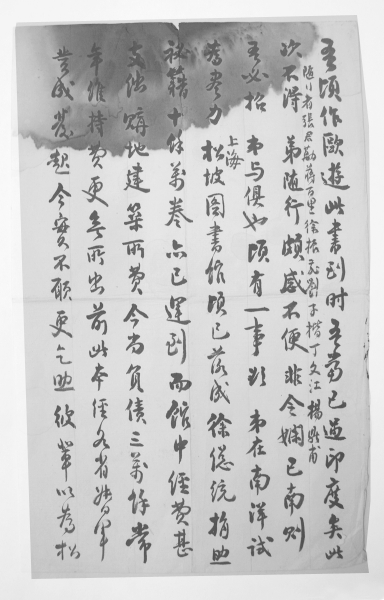 吾頃作歐遊此書到時吾當已過印度矣此
隨行者張君勱蔣百里徐振飛劉子楷丁文江楊鼎甫
次不得弟隨行頗感不便非令嫻已南則
吾必招弟与俱也頃有一事欲弟在南洋試
上海
為盡力松坡图書館頃已落成徐總統捐助
祕籍十餘萬卷亦已運到而館中經費甚
支絀購地建築所費今尚負債三萬餘常
年維持費更無所出前此本經各省將軍
贊成發起今實不願更乞助彼輩以為松